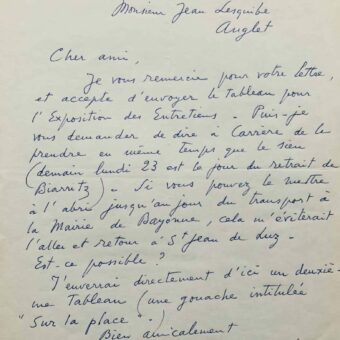 Monsieur Jean Lesquibe
Anglet
Cher ami,
Je vous remercie pour votre lettre,
et accepte d'envoyer le Tableau pour
l'Exposition des Entretiens - Puis-je
vous demander de dire à Carrère de le
prendre en même temps que le sien
(demain lundi 23 est le jour du retrait de
Biarritz) - Si vous pouvez le mettre
à l'abri jusqu'au jour du transport à
la Mairie de Bayonne, cela m'éviterait
l'aller et retour à St Jean de Luz -
Est-ce possible ?
J'enverrai directement d'ici un deuxiè-
me Tableau (une gouache intitulée
"Sur la place" -)
Bien amicalement